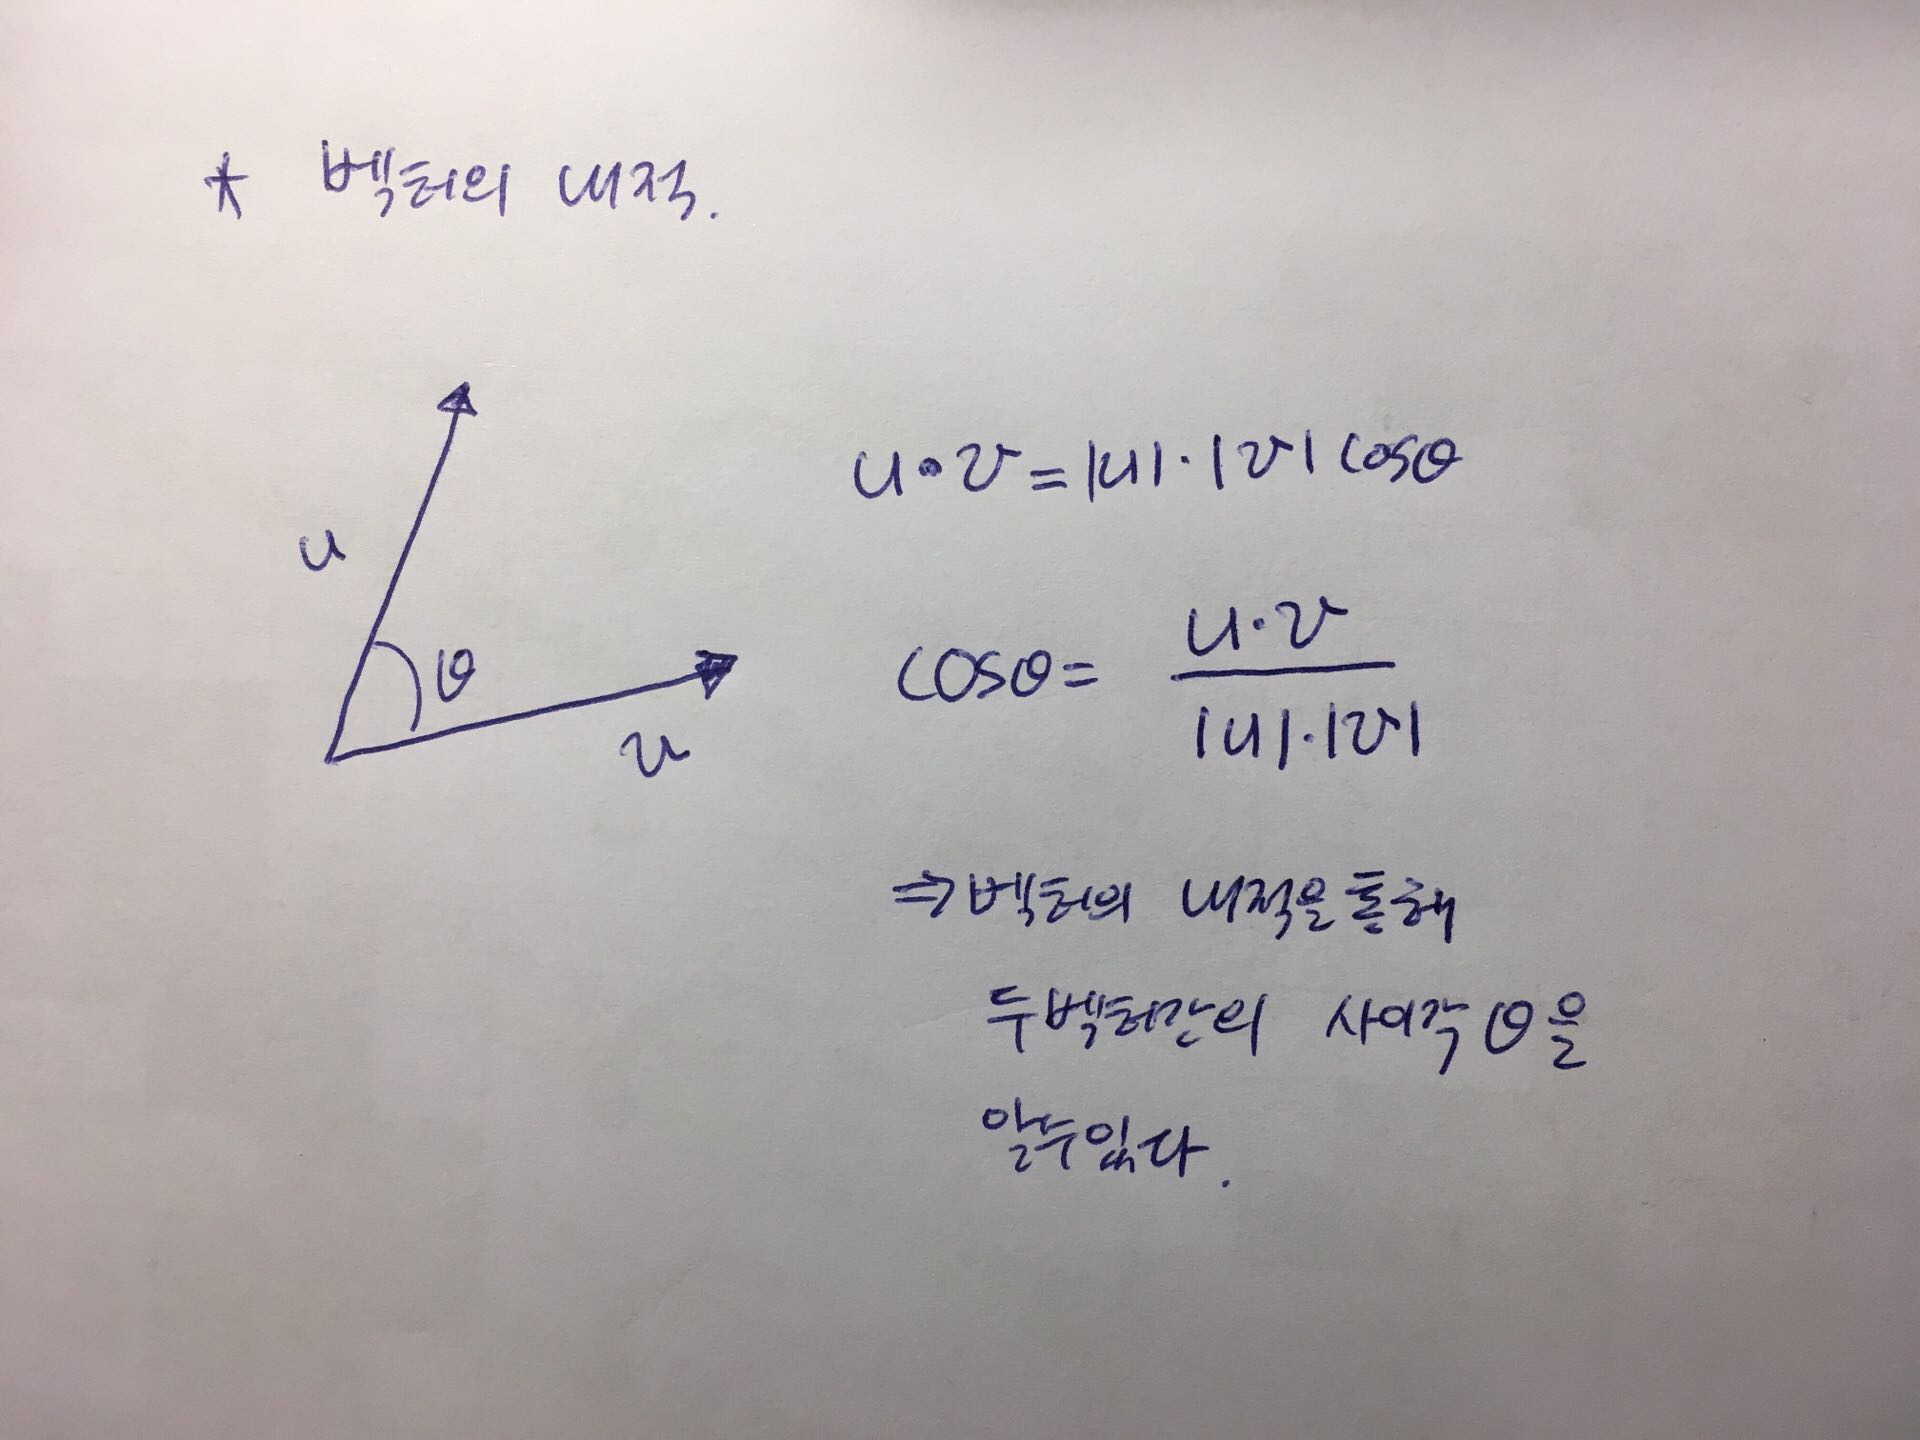 * 벡터의 내적.
u
θ
v
u·v=|u|·|v|cosθ
cosθ= u·v
|u|·|v|
⇒벡터의 내적을통해
두벡터간의 사이각 θ을
알수있다.